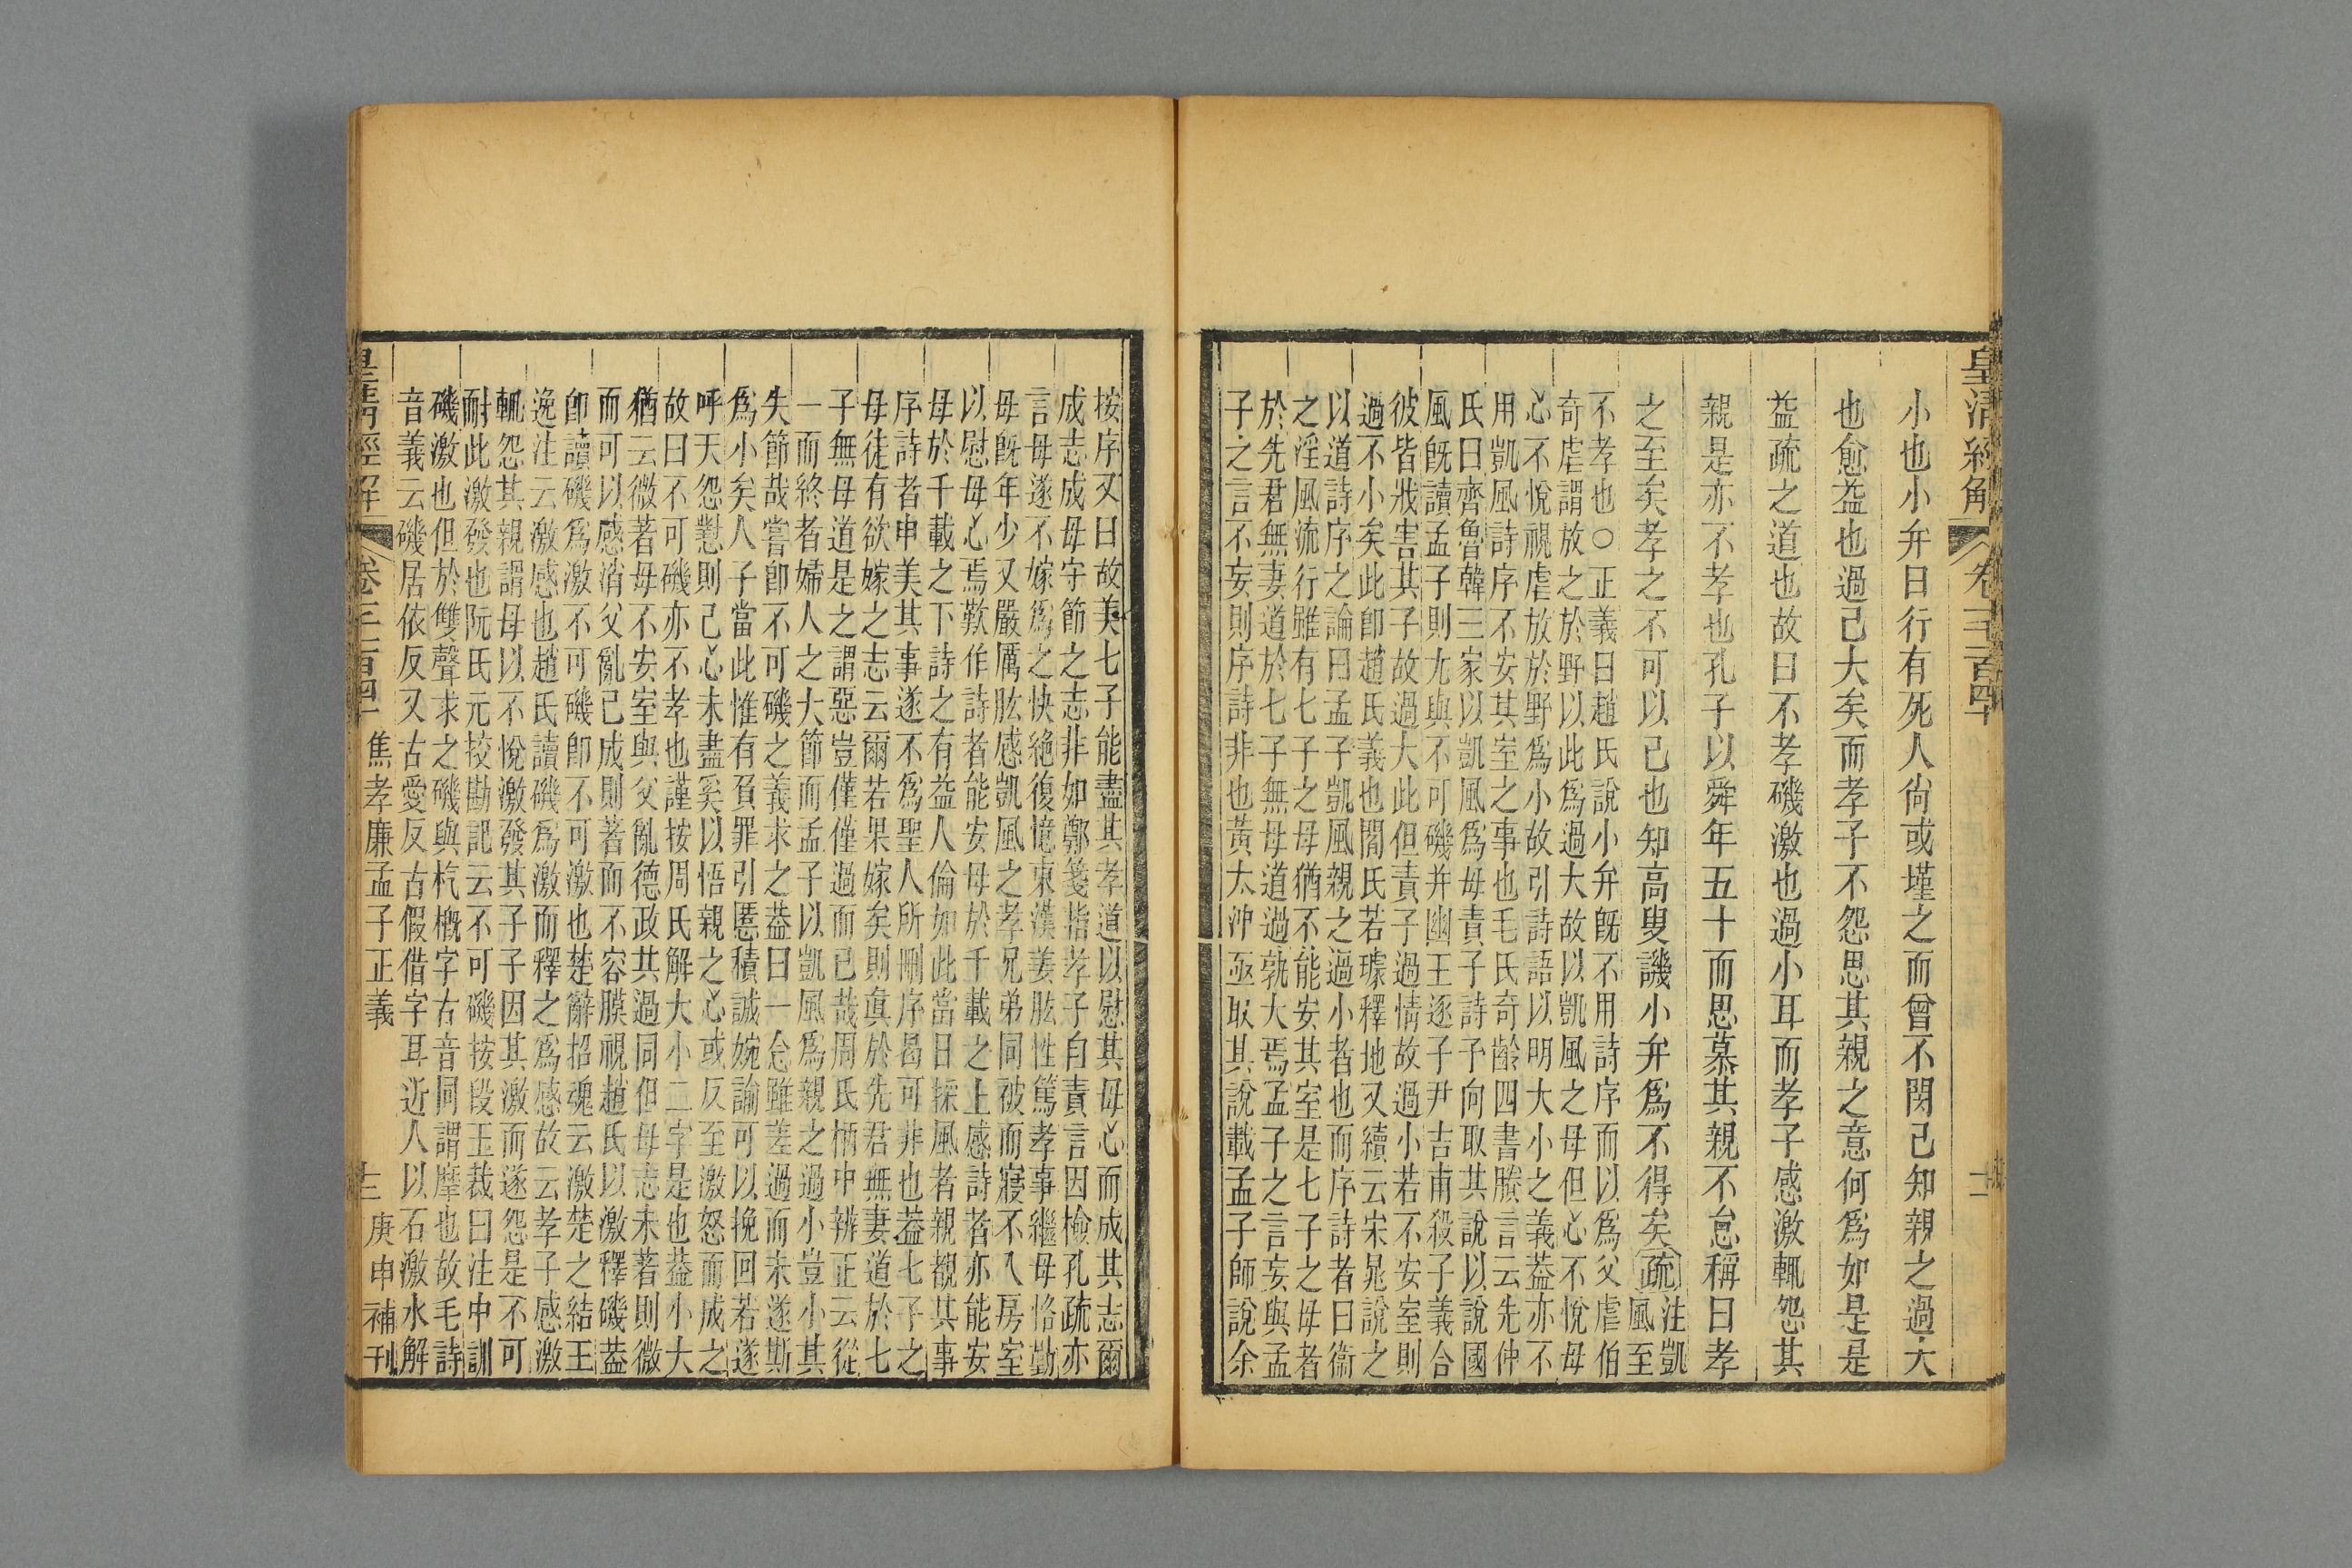 皇清經解
卷一千一百四十
小也小弁曰行有死人尙或墐之而曾不閔己知親之過大
也愈益也過己大矣而孝子不怨思其親之意何爲如是是
益疏之道也故曰不孝磯激也過小耳而孝子感激輒怨其
親是亦不孝也孔子以舜年五十而思慕其親不怠稱曰孝
之至矣孝之不可以已也知高叟譏小弁爲不得矣疏
注凱
風至
不孝也○正義曰趙氏說小弁旣不用詩序而以爲父虐伯
奇虐謂放之於野以此爲過大故以凱風之母但心不悅母
心不悅視虐放於野爲小故引詩語以明大小之義葢亦不
用凱風詩序不安其室之事也毛氏奇齡四書賸言云先仲
氏曰齊魯韓三家以凱風爲母責子詩予向取其說以說國
風旣讀孟子則尤與不可磯幷幽王逐子尹吉甫殺子義合
彼皆戕害其子故過大此但責子過情故過小若不安室則
過不小矣此卽趙氏義也閻氏若璩釋地又續云宋晁說之
以道詩序之論曰孟子凱風親之過小者也而序詩者曰衞
之淫風流行雖有七子之母猶不能安其室是七子之母者
於先君無妻道於七子無母道過孰大焉孟子之言妄與孟
子之言不妄則序詩非也黃太沖亟取其說載孟子師說余
按序又曰故美七子能盡其孝道以慰其母心而成其志爾
成志成母守節之志非如鄭箋指孝子自責言因檢孔疏亦
言母遂不嫁爲之快絕復憶東漢姜肱性篤孝事繼母恪勤
母旣年少又嚴厲肱感凱風之孝兄弟同被而寢不入房室
以慰母心焉歎作詩者能安母於千載之上感詩者亦能安
母於千載之下詩之有益人倫如此當日採風者親覩其事
序詩者申美其事遂不爲聖人所刪序曷可非也葢七子之
母徒有欲嫁之志云爾若果嫁矣則眞於先君無妻道於七
子無母道是之謂惡豈僅僅過而已哉周氏柄中辨正云從
一而終者婦人之大節而孟子以凱風爲親之過小豈小其
失節哉嘗卽不可磯之義求之葢曰一念雖差過而未遂斯
爲小矣人子當此惟有負罪引慝積誠婉諭可以挽回若遂
呼天怨懟則己心未盡奚以悟親之心或反至激怒而成之
故曰不可磯亦不孝也謹按周氏解大小二字是也葢小大
猶云微著母不安室與父亂德政其過同但母志未著則微
而可以感消父亂己成則著而不容膜視趙氏以激釋磯葢
卽讀磯爲激不可磯卽不可激也楚辭招魂云激楚之結王
逸注云激感也趙氏讀磯爲激而釋之爲感故云孝子感激
輒怨其親謂母以不悅激發其子子因其激而遂怨是不可
耐此激發也阮氏元挍勘記云不可磯按段玉裁曰注中訓
磯激也但於雙聲求之磯與杚槪字古音同謂摩也故毛詩
音義云磯居依反又古愛反古假借字耳近人以石激水解
皇清經解
卷一千一百四十
焦孝廉孟子正義
庚申補刊